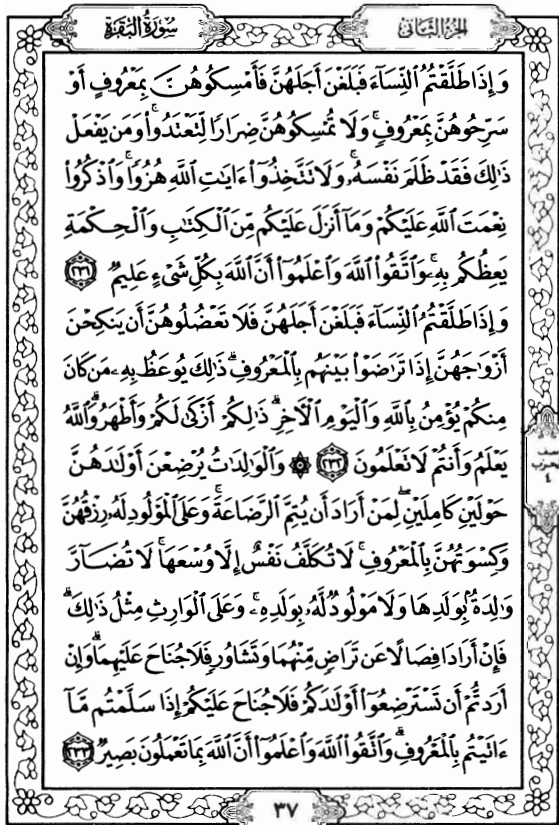 سورة البقرة
الجزء الثاني
وَإِذَا طَلَّقْتُمُ النِّسَآءَ فَبَلَغْنَ أَجَلَهُنَّ فَأَمْسِكُوهُنَّ بِمَعْرُوفٍ أَوْ
سَرِّحُوهُنَّ بِمَعْرُوفٍ ۚ وَلَا تُمْسِكُوهُنَّ ضِرَارًا لِّتَعْتَدُوا۟ ۚ وَمَن يَفْعَلْ
ذَٰلِكَ فَقَدْ ظَلَمَ نَفْسَهُۥ ۚ وَلَا تَتَّخِذُوٓا۟ ءَايَٰتِ ٱللَّهِ هُزُوًا ۚ وَٱذْكُرُوا۟
نِعْمَتَ ٱللَّهِ عَلَيْكُمْ وَمَآ أَنزَلَ عَلَيْكُم مِّنَ ٱلْكِتَٰبِ وَٱلْحِكْمَةِ
يَعِظُكُم بِهِۦ ۚ وَٱتَّقُوا۟ ٱللَّهَ وَٱعْلَمُوٓا۟ أَنَّ ٱللَّهَ بِكُلِّ شَىْءٍ عَلِيمٌ ٢٣١
وَإِذَا طَلَّقْتُمُ ٱلنِّسَآءَ فَبَلَغْنَ أَجَلَهُنَّ فَلَا تَعْضُلُوهُنَّ أَن يَنكِحْنَ
أَزْوَٰجَهُنَّ إِذَا تَرَٰضَوْا۟ بَيْنَهُم بِٱلْمَعْرُوفِ ۗ ذَٰلِكَ يُوعَظُ بِهِۦ مَن كَانَ
مِنكُمْ يُؤْمِنُ بِٱللَّهِ وَٱلْيَوْمِ ٱلْءَاخِرِ ۗ ذَٰلِكُمْ أَزْكَىٰ لَكُمْ وَأَطْهَرُ ۗ وَٱللَّهُ
يَعْلَمُ وَأَنتُمْ لَا تَعْلَمُونَ ٢٣٢ ۞ وَٱلْوَٰلِدَٰتُ يُرْضِعْنَ أَوْلَٰدَهُنَّ
حَوْلَيْنِ كَامِلَيْنِ ۖ لِمَنْ أَرَادَ أَن يُتِمَّ ٱلرَّضَاعَةَ ۚ وَعَلَى ٱلْمَوْلُودِ لَهُۥ رِزْقُهُنَّ
وَكِسْوَتُهُنَّ بِٱلْمَعْرُوفِ ۚ لَا تُكَلَّفُ نَفْسٌ إِلَّا وُسْعَهَا ۚ لَا تُضَآرَّ
وَٰلِدَةٌۢ بِوَلَدِهَا وَلَا مَوْلُودٌ لَّهُۥ بِوَلَدِهِۦ ۚ وَعَلَى ٱلْوَارِثِ مِثْلُ ذَٰلِكَ ۗ
فَإِنْ أَرَادَا فِصَالًا عَن تَرَاضٍ مِّنْهُمَا وَتَشَاوُرٍ فَلَا جُنَاحَ عَلَيْهِمَا ۗ وَإِنْ
أَرَدتُّمْ أَن تَسْتَرْضِعُوٓا۟ أَوْلَٰدَكُمْ فَلَا جُنَاحَ عَلَيْكُمْ إِذَا سَلَّمْتُم مَّآ
ءَاتَيْتُم بِٱلْمَعْرُوفِ ۗ وَٱتَّقُوا۟ ٱللَّهَ وَٱعْلَمُوٓا۟ أَنَّ ٱللَّهَ بِمَا تَعْمَلُونَ بَصِيرٌ ٢٣٣
نصف
الحزب
٤
٣٧